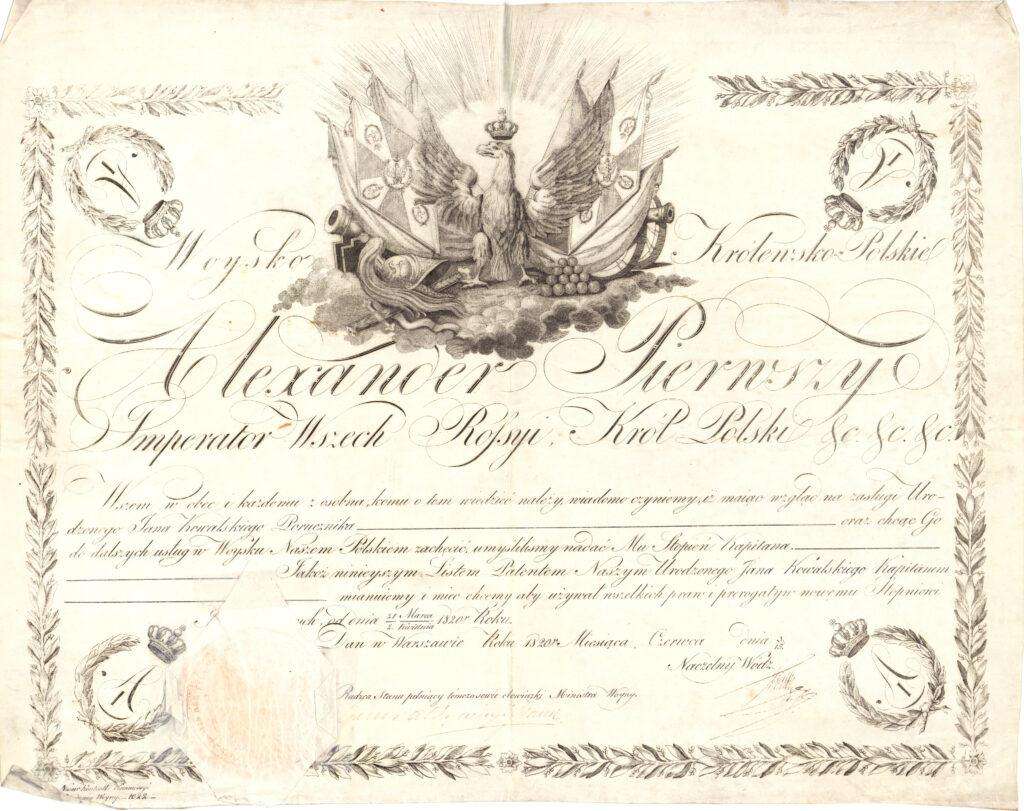 Woysko Królewsko-Polskie
Alexander Pierwszy
Imperator Wszech Rossyi, Król Polski &c. &c. &c.
Wszem w obec i każdemu z osobna, komu o tem wiedzieć należy, wiadomo czyniemy, iż maiąc wzgląd na zasługi Uro-
dzonego Jana Kowalskiego Porucznika oraz chcąc Go
do dalszych usług w Woysku Naszem Polskiem zachęcić, umyśliliśmy nadać Mu Stopień Kapitana.
Jakoż ninieyszym Listem Patentem Naszym Urodzonego Jana Kowalskiego Kapitanem
mianuiemy i mieć chcemy aby używał wszelkich praw i prerogatyw nowemu Stopniowi
od dnia 21 Marca / 2. Kwietnia 1820go Roku.
Dan w Warszawie Roku 1820go Miesiąca Czerwca dnia
Naczelny Wódz
Radzca Stanu pełniący tymczasowie obowiązki Ministra Woyny.
Woyny 1822